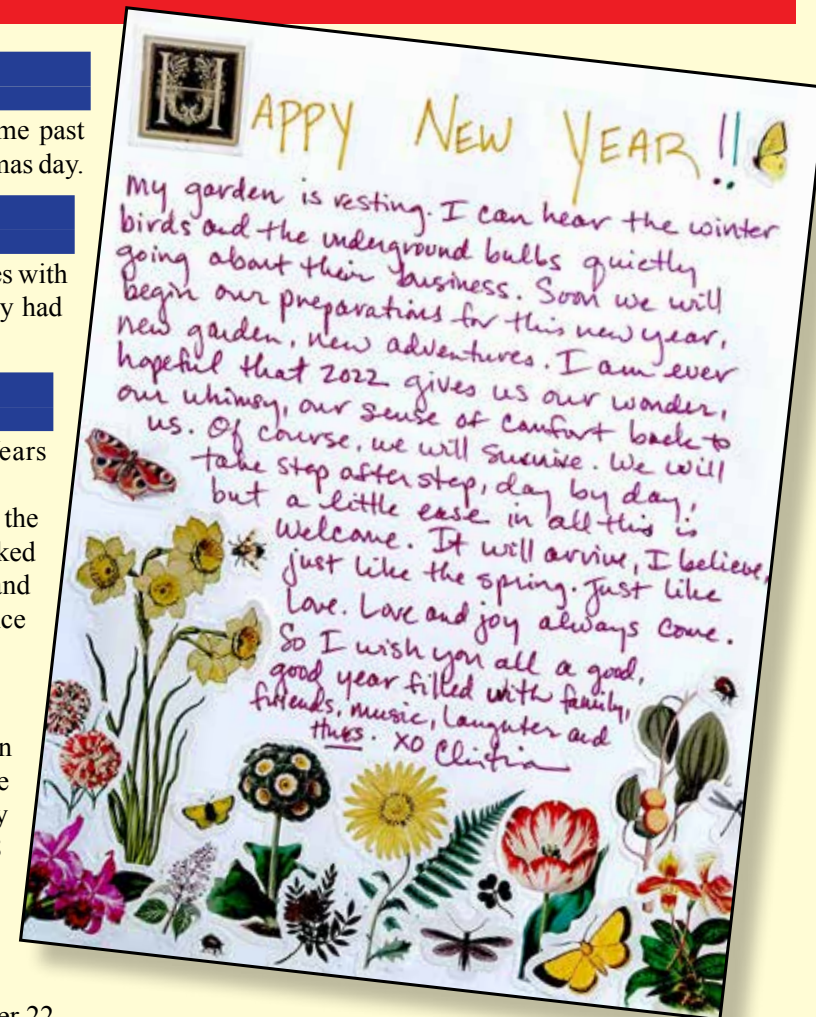 me past
mas day.
es with
y had
ears
the
ked
and
ce
n
e
y
er 22
HAPPY NEW YEAR!!
My garden is resting. I can hear the winter
birds and the underground bulbs quietly
going about their business. Soon we will
begin our preparations for this new year,
new garden, new adventures. I am ever
hopeful that 2022 gives us our wonder,
our whimsy, our sense of comfort back to
us. Of course, we will survive. We will
take step after step, day by day,
but a little ease in all this is
Welcome. It will arrive, I believe,
just like the spring. Just like
Love. Love and joy always come.
So I wish you all a good,
good year filled with family,
friends, music, laughter and
Hugs. XO